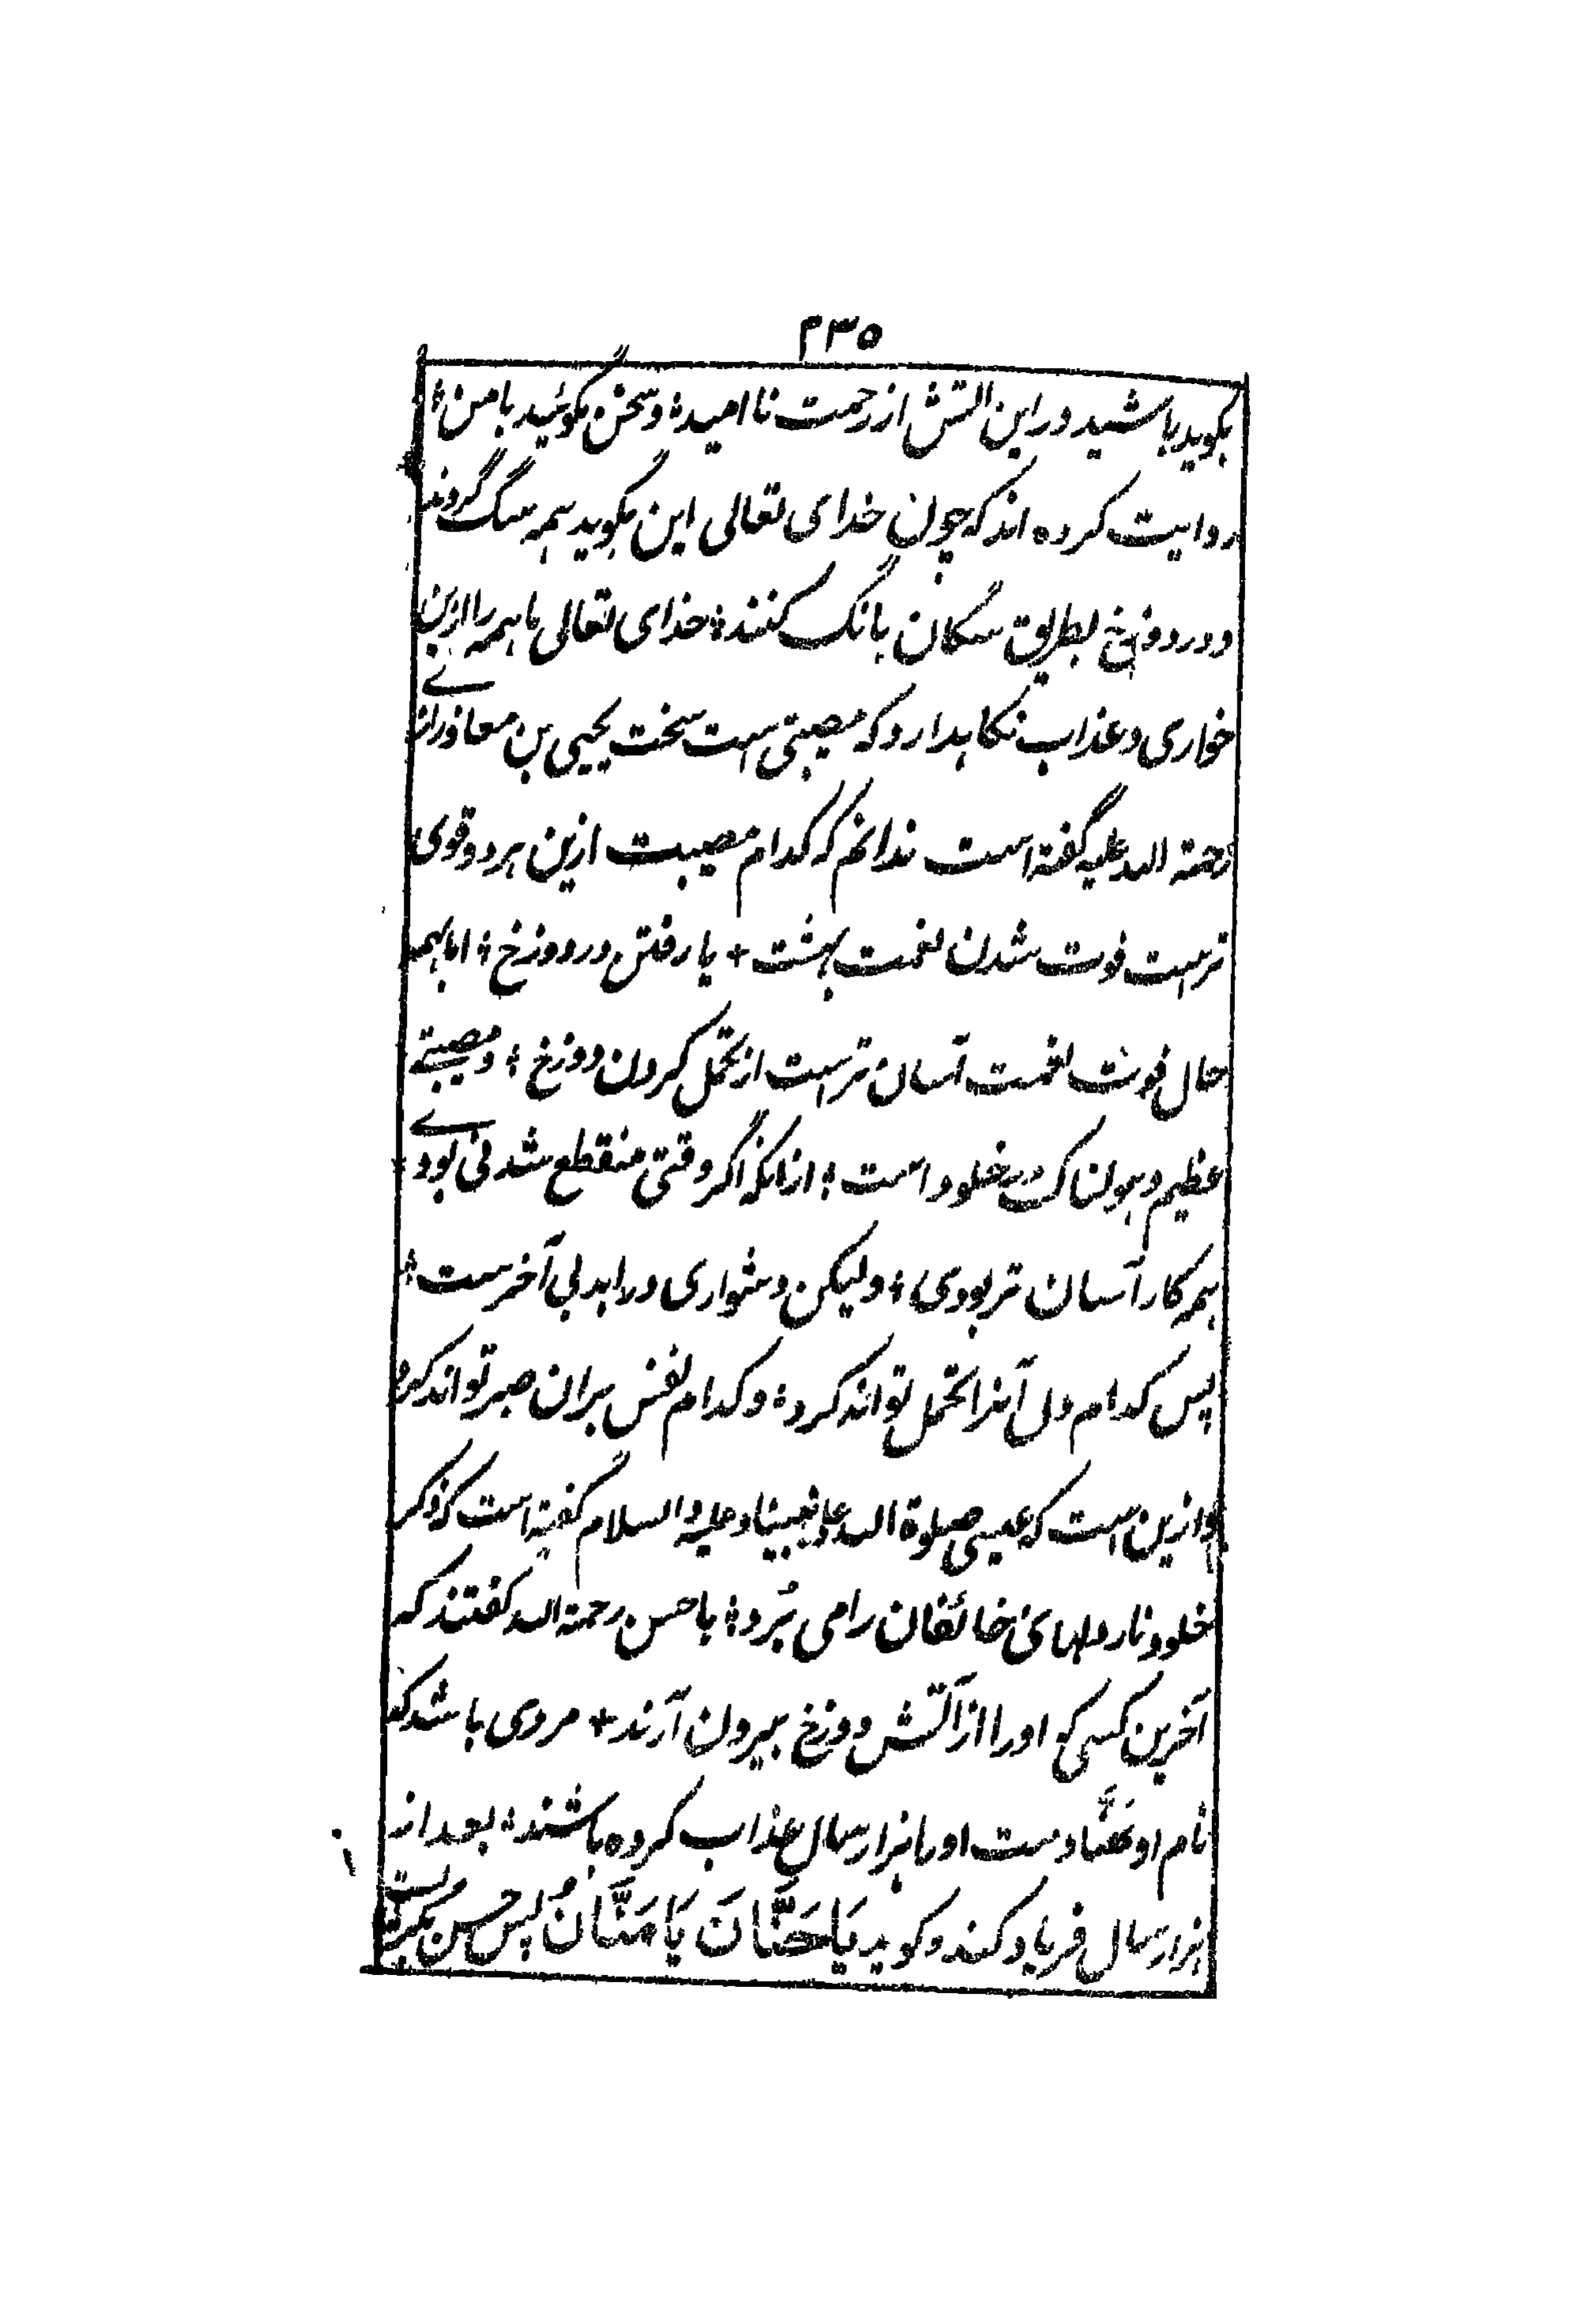 ۲۳۵
بگوید باشید در این آتش از رحمت ناامید؛ و سخن مگوئید با من؛
روایت کرده اند که چون خدای تعالی این بگوید همه سگ گردند
و در دوزخ بطریق سگان بانگ کنند؛ خدای تعالی ما همه را ازین
خواری و عذاب نگاهدارد که مصیبتی است سخت یحیی بن معاذ رازی
رحمة الله علیه گفته است ندانم که کدام مصیبت ازین هر دو قوی
ترست فوت شدن نعمت بهشت + یا رفتن در دوزخ؛ اما بهمه
حال فوت نعمت آسان ترست از تحمل کردن دوزخ؛ و مصیبتے
عظیم و هولناک خلود است؛ ازانکه اگر وقتی منقطع شدنی بودے
همه کار آسان تر بودی؛ ولیکن دشواری در ابد بی آخرست؛
پس کدام دل آنرا تحمل تواند کرد؛ و کدام نفس بران صبر تواند کرد
و ازین است که عیسی صلوة الله علی نبینا و علیه والسلام گفته است که ذکر
خلود نار دلهای خائفان را می بُرد؛ با حسن رحمة الله گفتند که
آخرین کسی که او را از آتش دوزخ بیرون آرند + مردی باشد که
نام او هَنَّادست او را هزار سال عذاب کرده باشند؛ بعد از
هزار سال فریاد کند و گوید یَا حَنَّانُ یَا مَنَّانُ پس حسن بگریست